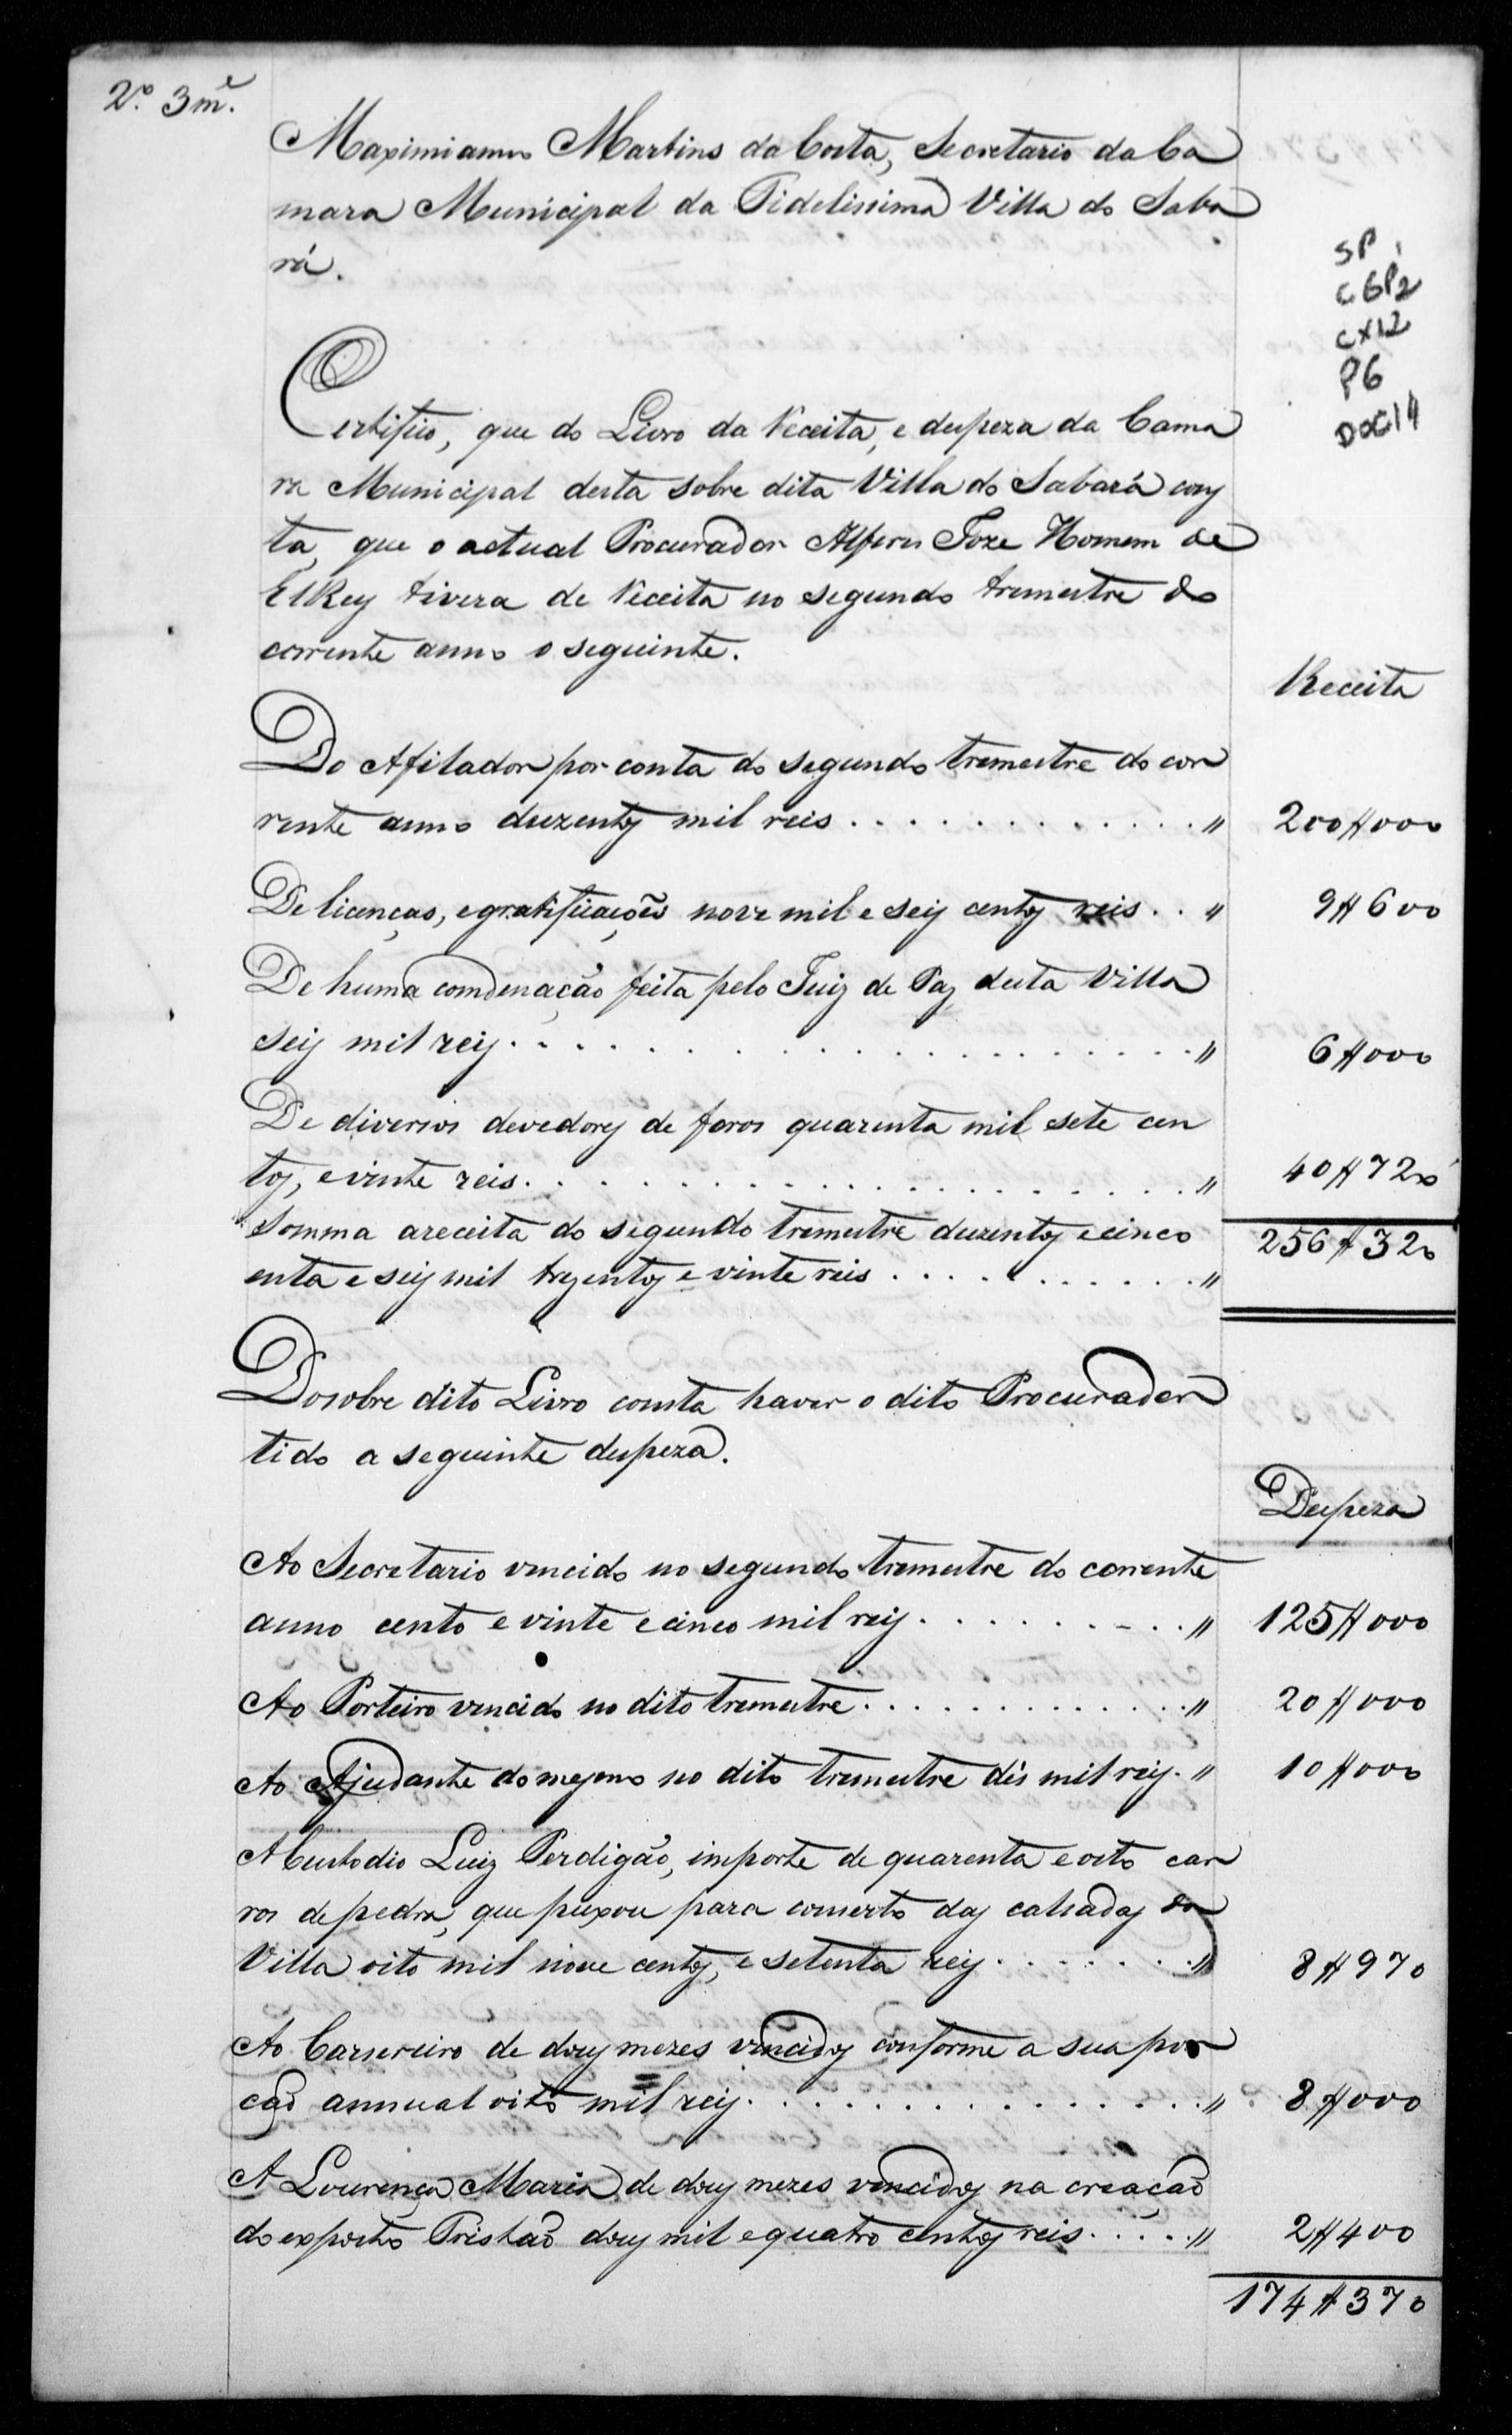 2º 3mᵉ.
Maximianno Martins da Costa, Secretario da Ca
mara Municipal da Fidelissima Villa do Saba
rá.
SP
CGP2
CX12
P6
DOC14
Certifico, que do Livro da Receita, e despeza da Cama
ra Municipal desta sobre dita Villa do Sabará cons
ta, que o actual Procurador Alferes Joze Homem de
ElRey tivera de Receita no segundo tremestre do
corrente anno o seguinte.
Receita
Do Afilador por conta do segundo tremestre do cor
rente anno duzentos mil reis . . . . . . . . . . . . . " 200$000
De licenças, e gratificações nove mil e seis centos reis . . " 9$600
De huma comdenação feita pelo Juiz de Paz desta Villa
seis mil reis . . . . . . . . . . . . . . . . . . . . " 6$000
De diversos devedores de foros quarenta mil sete cen
tos, e vinte reis . . . . . . . . . . . . . . . . . . " 40$720
Somma a receita do segundo tremestre duzentos e cinco
enta e seis mil trezentos e vinte reis . . . . . . . . . . " 256$320
Do sobre dito Livro consta haver o dito Procurador
tido a seguinte despeza.
Despeza
Ao Secretario vencido no segundo tremestre do corrente
anno cento e vinte e cinco mil reis . . . . . . . . . . " 125$000
Ao Porteiro vencido no dito tremestre . . . . . . . . . . . " 20$000
Ao Ajudante do mesmo no dito tremestre dés mil reis . " 10$000
A Custodio Luiz Perdigão, importe de quarenta e oito car
ros de pedra, que puxou para conserto das calsadas da
Villa oito mil nove centos, e setenta reis . . . . . . . " 8$970
Ao Carsereiro de dous mezes vencidos conforme a sua por
cão annual oito mil reis . . . . . . . . . . . . . . . . " 8$000
A Lourença Maria de dous mezes vencidos na creacão
do exposto Tristaõ dous mil e quatro centos reis . . . . . " 2$400
174$370